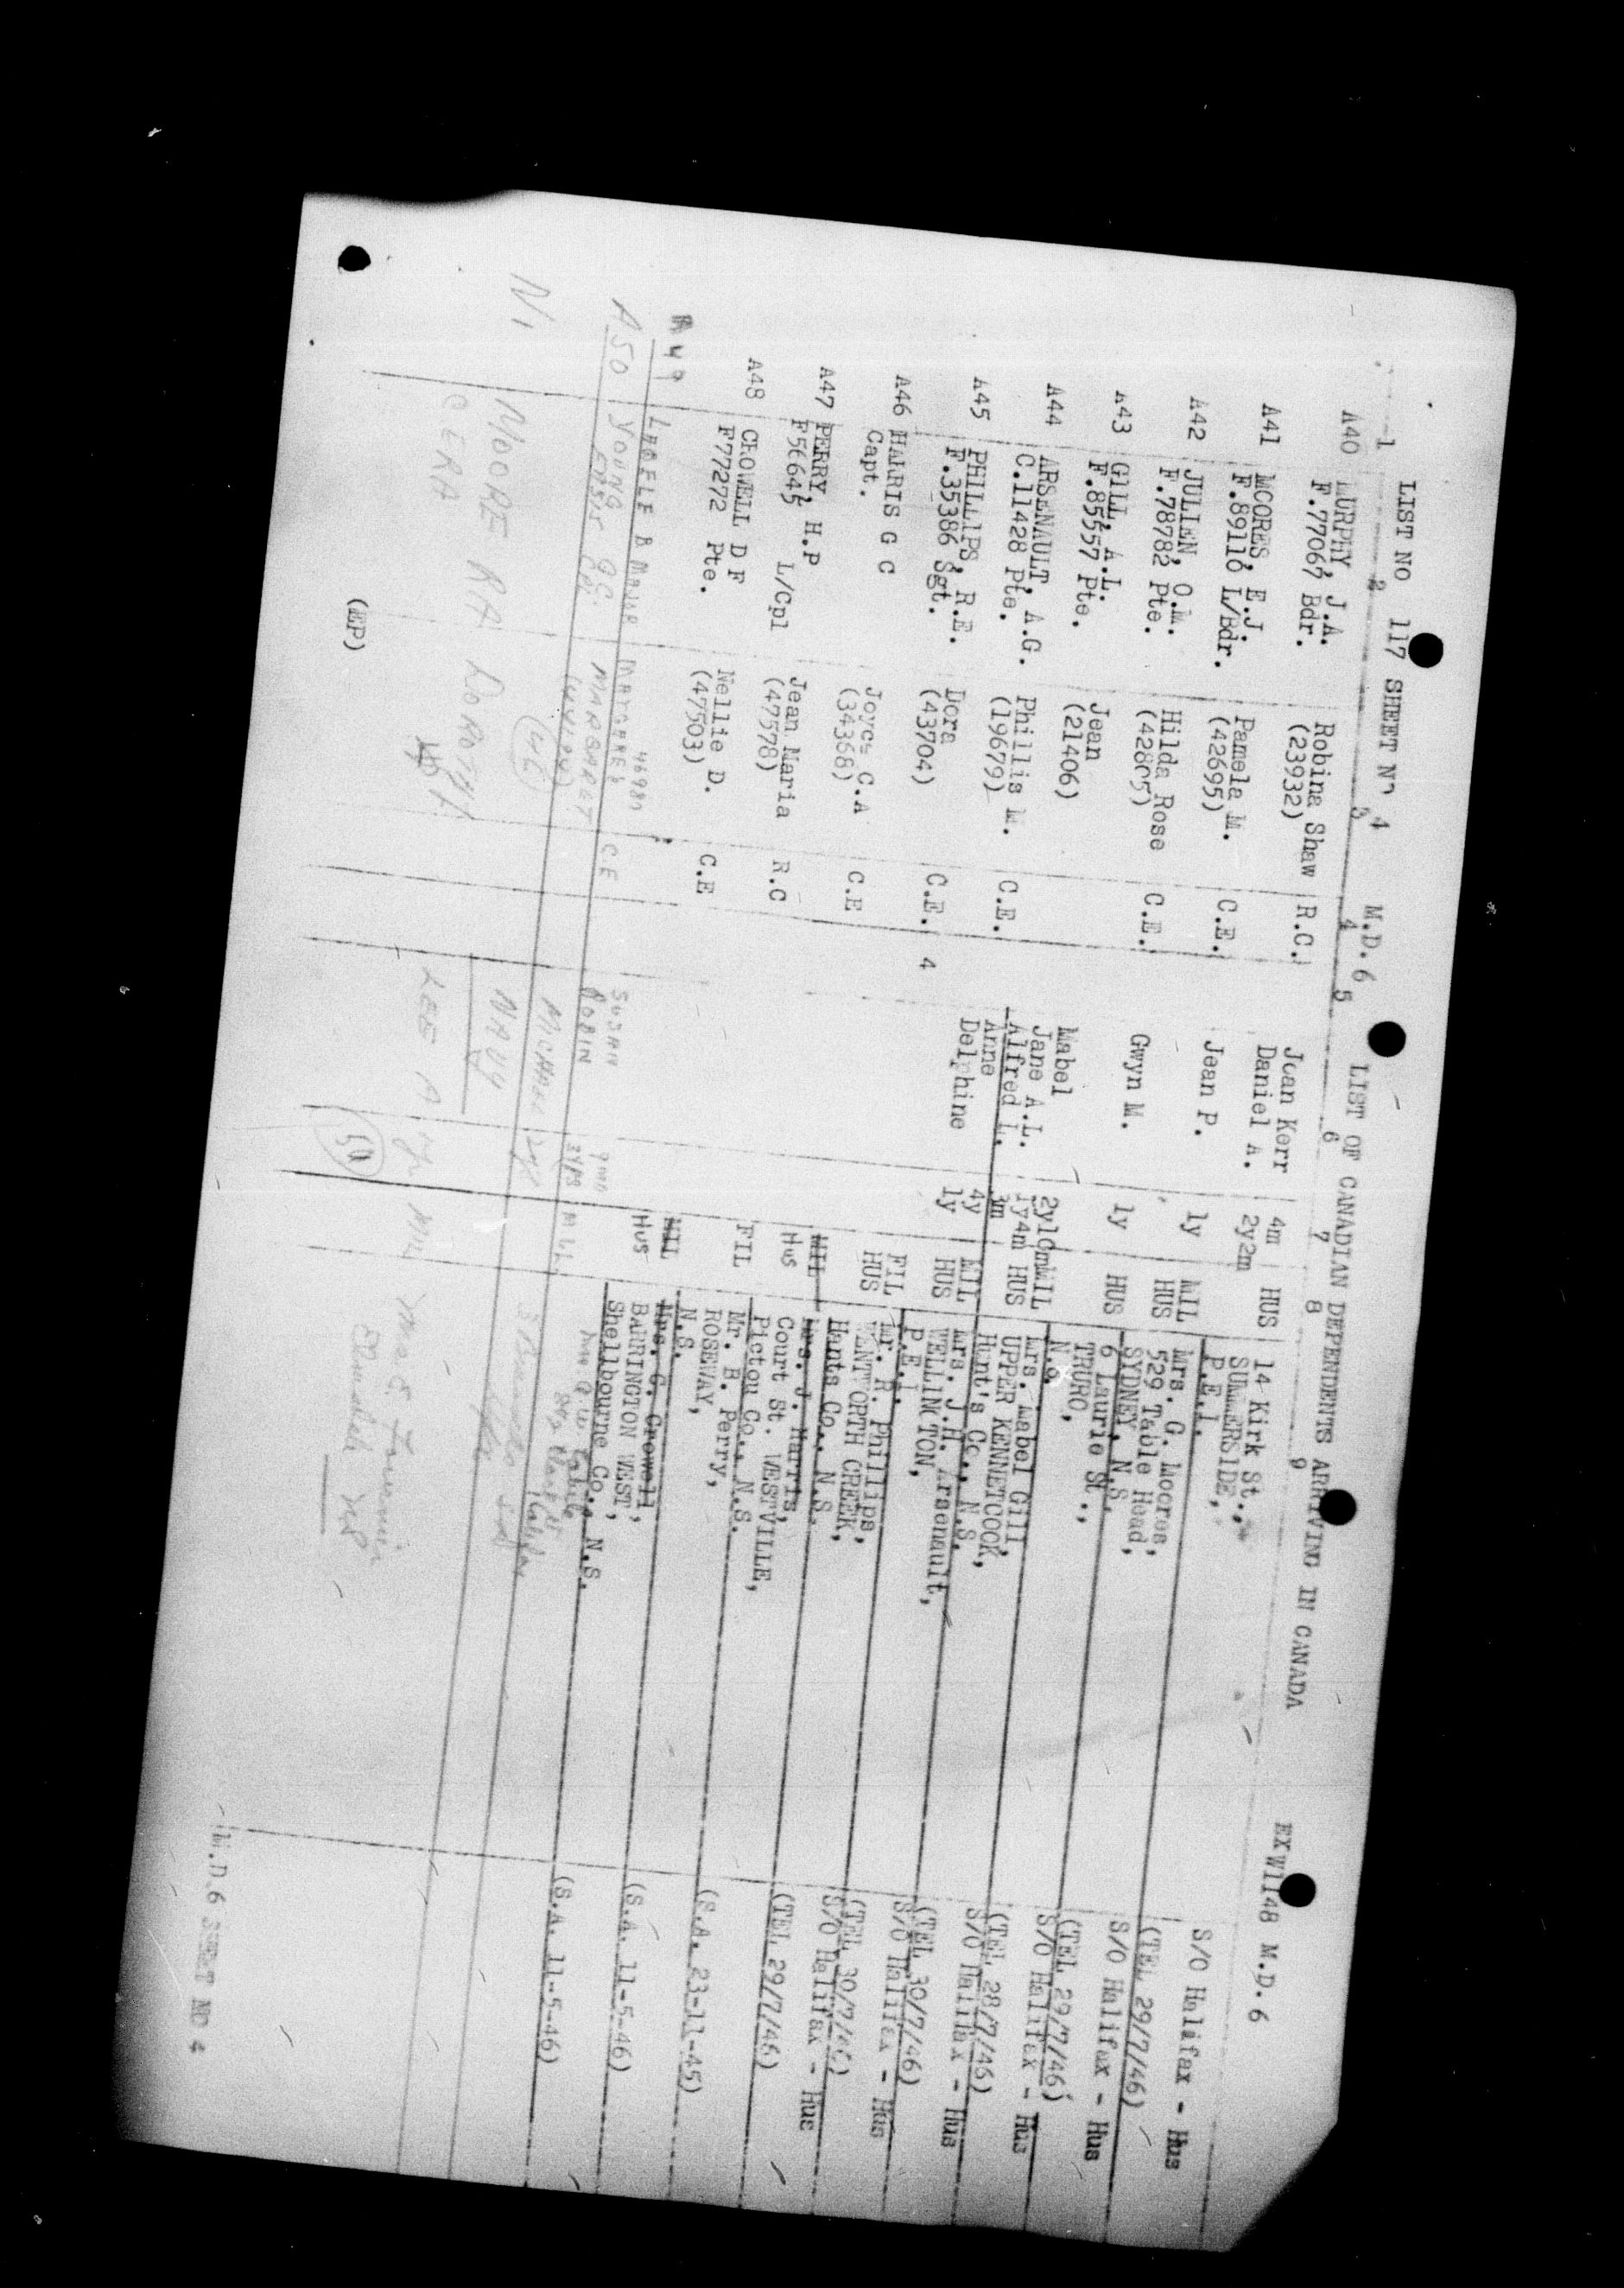 LIST NO 117 SHEET NO 4 M.D.6 LIST OF CANADIAN DEPENDENTS ARRIVING IN CANADA EXW1148 M.D.6
1 2 3 4 5 6 7 8 9
A40 MURPHY, J.A. Robina Shaw R.C. Joan Kerr 4m HUS 14 Kirk St., S/O Halifax - Hus
F.77067 Bdr. (23932) Daniel A. 2y2m SUMMERSIDE, (TEL 29/7/46)
P.E.I.
A41 MOORES, E.J. Pamela M. C.E. Jean P. 1y MIL Mrs. G. Moores, S/O Halifax - Hus
F.89110 L/Bdr. (42695) HUS 529 Table Head, (TEL 29/7/46)
SYDNEY, N.S.
A42 JULIEN, O.M. Hilda Rose C.E. Gwyn M. 1y HUS 6 Laurie St., S/O Halifax - Hus
F.78782 Pte. (42805) TRURO, (TEL 28/7/46)
N.S.
A43 GILL, A.L. Jean Mabel 2y10m MIL Mrs. Mabel Gill, S/O Halifax - Hus
F.85557 Pte. (21406) Jane A.L. 1y4m HUS UPPER KENNETCOOK, (TEL 30/7/46)
Alfred L. 3m Hunt's Co., N.S.
A44 ARSENAULT, A.G. Phillis M. C.E. Anne 4y MIL Mrs. J.H. Arsenault, S/O Halifax - Hus
C.11428 Pte. (19679) Delphine 1y HUS WELLINGTON, (TEL 30/7/46)
P.E.I.
A45 PHILLIPS, R.E. Dora C.E. 4 FIL Mr. R. Phillips, S/O Halifax - Hus
F.35386 Sgt. (43704) HUS WENTWORTH CREEK, (TEL 29/7/46)
Hants Co., N.S.
A46 HARRIS G C Joyce C.A C.E MIL Mrs. J. Harris, (S.A. 23-11-45)
Capt. (34368) Hus Court St. WESTVILLE,
Pictou Co., N.S.
A47 PERRY, H.P Jean Maria R.C FIL Mr. B. Perry, (S.A. 11-5-46)
F56645 L/Cpl (47578) ROSEWAY,
N.S.
A48 CROWELL D F Nellie D. C.E MIL Mrs. G. Crowell, (S.A. 11-5-46)
F77272 Pte. (47503) HUS BARRINGTON WEST,
Shellbourne Co., N.S.
A49 MAJOR 46987 C.E SUSAN
ROBIN 3YRS
A50 YOUNG MARGARET MICHAEL Halifax
N1 MOORE RA DOROTHY NAVY
LEE A
(EP)
M.D.6 SHEET NO 4